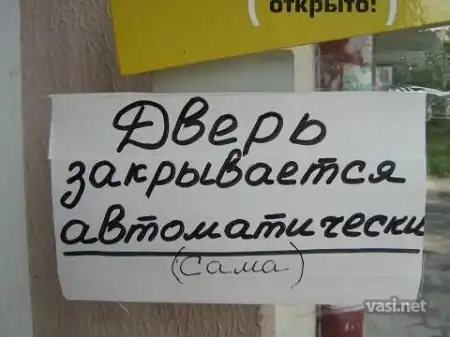 открыто!
Дверь
закрывается
автоматически
(сама)
vasi.net